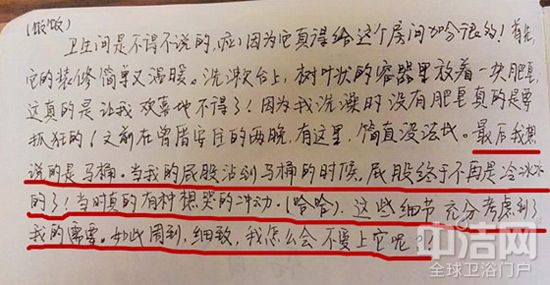 (饭饭)
卫生间是不得不说的,应因为它真得给这个房间加分很多!首先,
它的装修简单又温暖。洗漱台上,树叶状的容器里放着一块肥皂,
这真的是让我欢喜地不得了!因为我洗澡时没有肥皂真的是要
抓狂的(之前在曾厝安住的两晚,有这里,简直没法比。最后我想
说的是马桶。当我的屁股沾到马桶的时候,屁股终于不再是冷冰冰
的了!当时真的有种想哭的冲动。(哈哈)。这些细节充分考虑到了
我的需要。如此周到,细致,我怎么会不爱上它呢?!
中洁网
全球卫浴门户